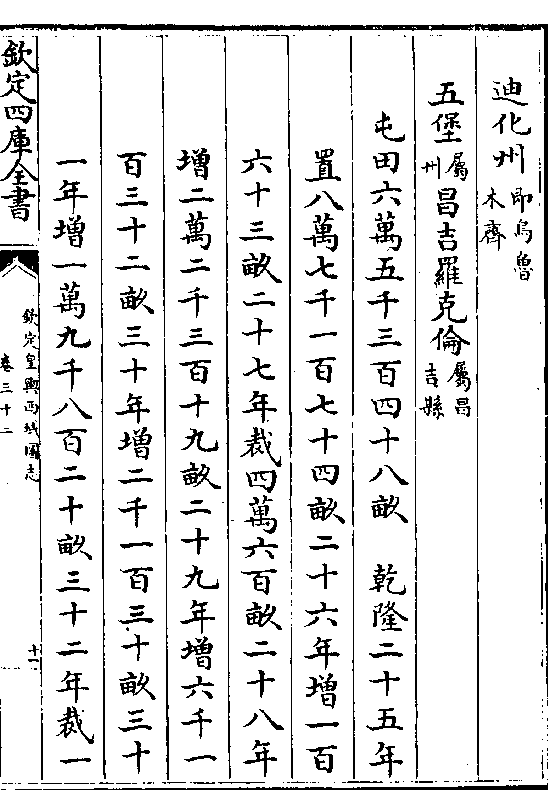 迪化州即烏魯木齊
五堡屬州昌吉羅克倫屬昌吉縣
屯田六萬五千三百四十八畝　乾隆二十五年
置八萬七千一百七十四畝二十六年增一百
六十三畝二十七年裁四萬六百畝二十八年
增二萬二千三百十九畝二十九年增六千一
百三十二畝三十年增二千一百三十畝三十
一年增一萬九千八百二十畝三十二年裁一
欽定四庫全書
欽定皇輿西域圖志
卷三十二
十一